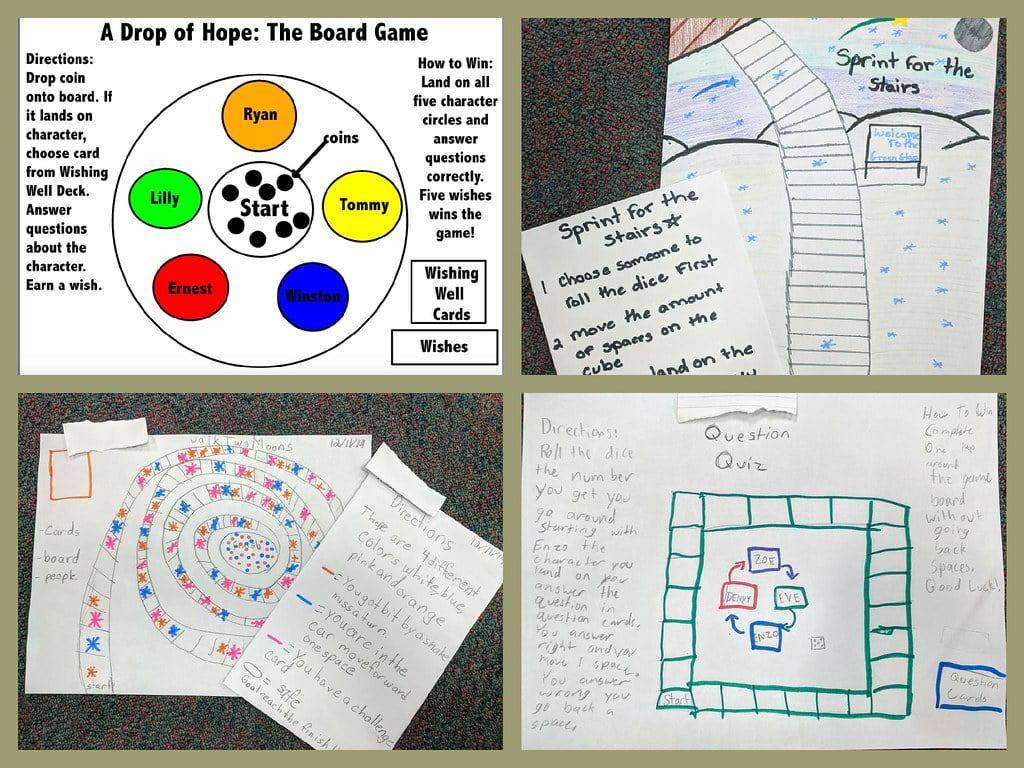 A Drop of Hope: The Board Game
Directions:
Drop coin
onto board. If
it lands on
character,
choose card
from Wishing
Well Deck.
Answer
questions
about the
character.
Earn a wish.
Ryan
coins
Lilly
Start
Tommy
Ernest
Winston
How to Win:
Land on all
five character
circles and
answer
questions
correctly.
Five wishes
wins the
game!
Wishing
Well
Cards
Wishes
Sprint for the
Stairs
Welcome
To the
Sprint for the
Stairs
1 choose someone to
roll the dice first
2 move the amount
of spaces on the
cube
land on the
Walk Two Moons
12/11/19
-Cards
-board
- people
start
Directions
12/11/1
Thore are 4 different
colors white, blue
pink and orange
= You got bit by a snake
miss a turn.
= you are in the
car move forward
one space
= You have a challenge
card
= safe
Goal: reach the finish!!
Directions:
Roll the dice
the number
you get you
go around
starting with
Enzo the
character you
land on you
answer the
question in
question cards.
You answer
right and you
move 1 space.
You answer
wrong you
go back a
space.
Question
Quiz
ZOE
DENNY
EVE
ENZO
Start
How To Win
Complete
One lap
around
the game
board
without
going
back
spaces.
Good Luck!
Question
Cards